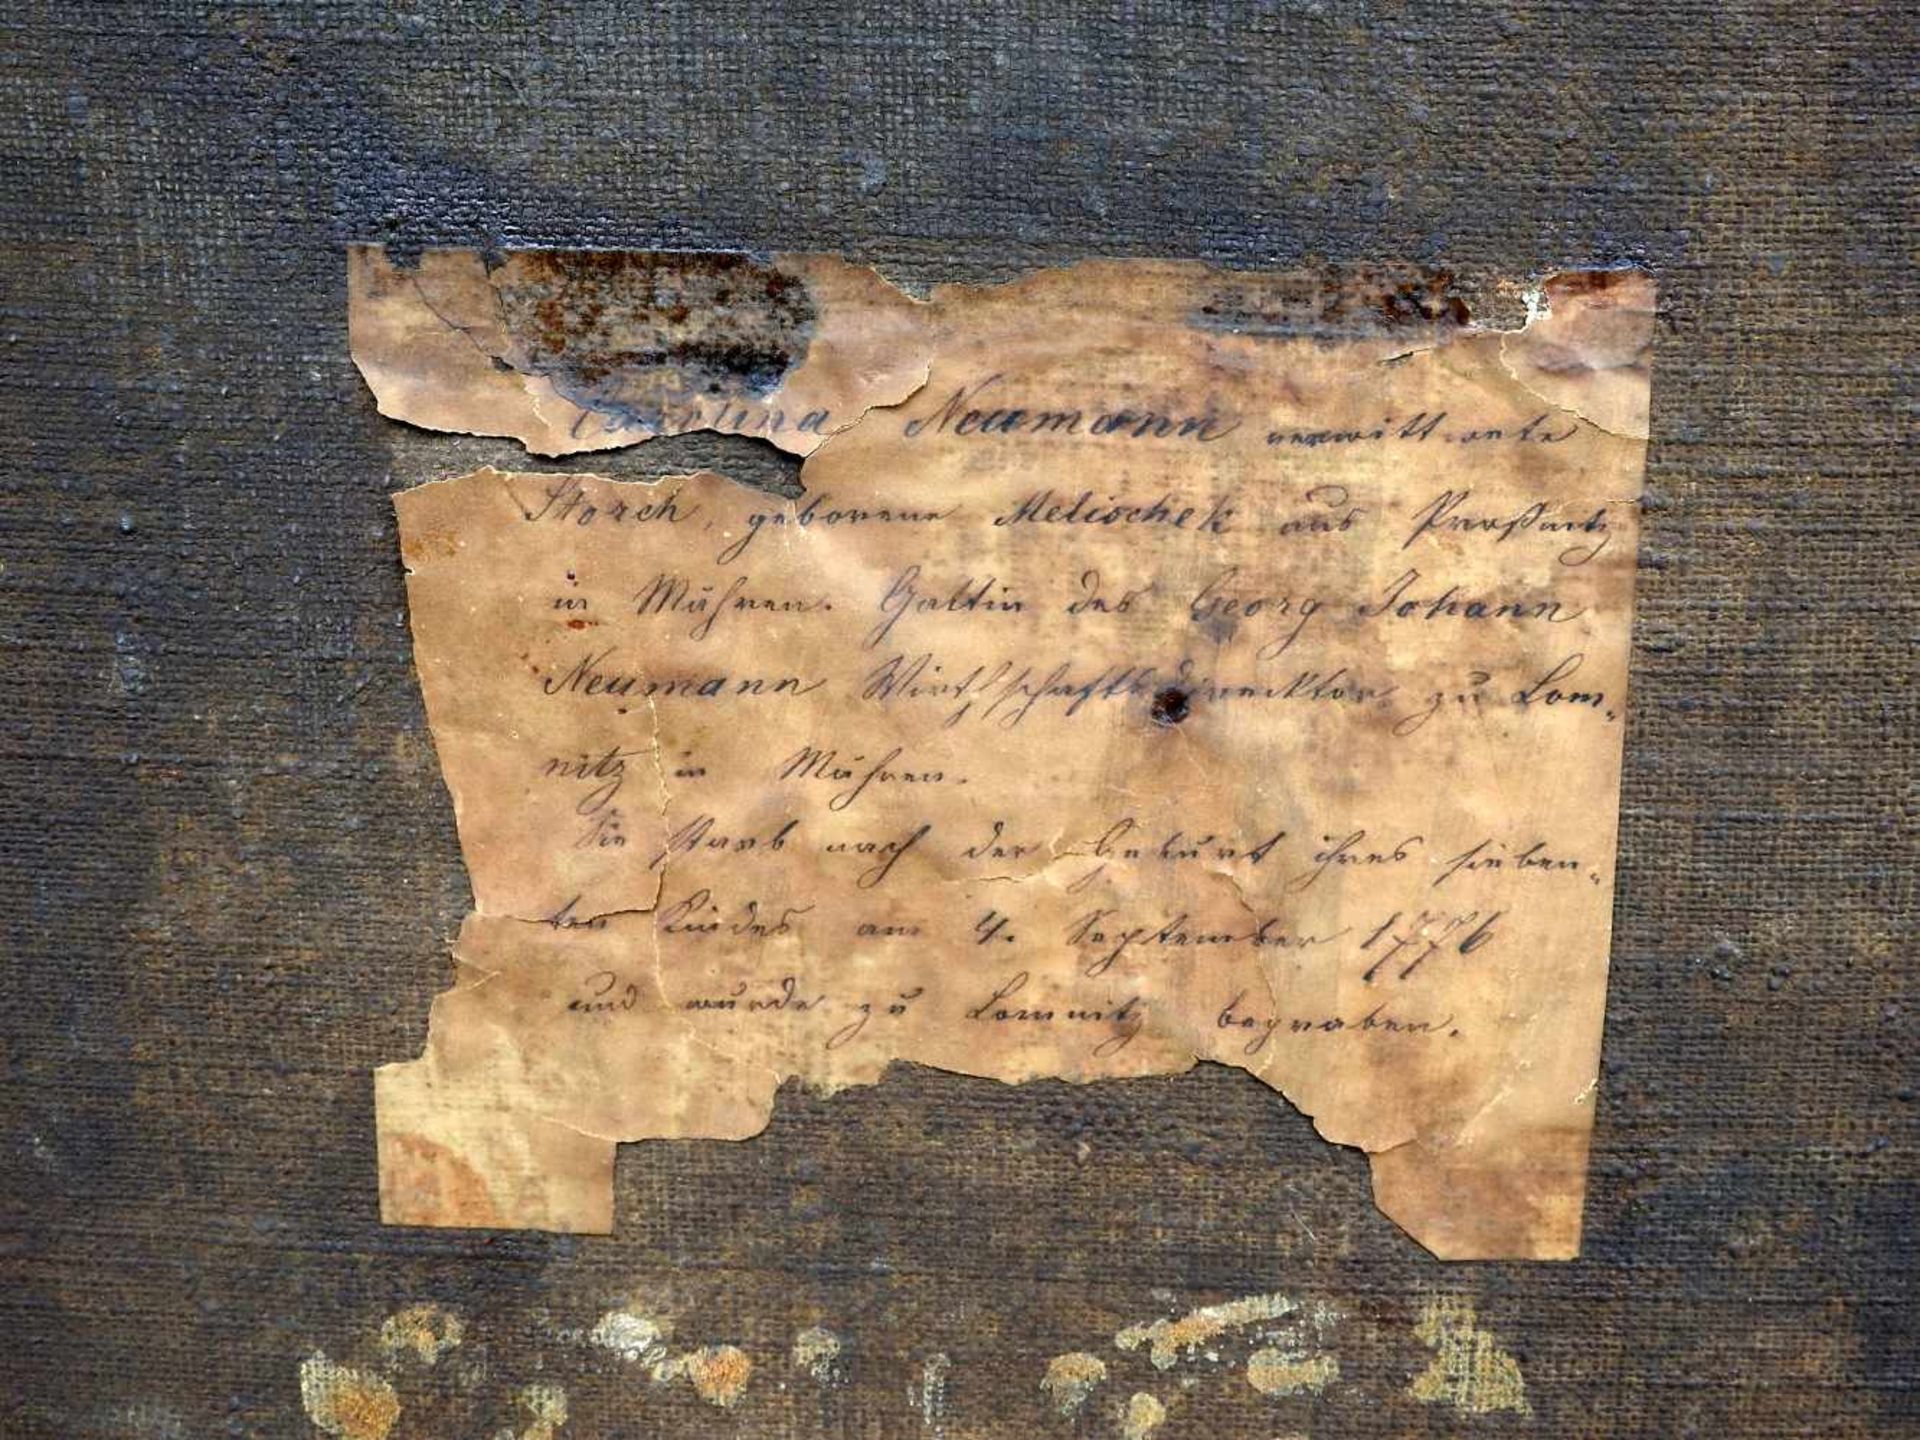 Carolina Neumann verwittwete
Storch, geborene Melischek aus Proßnitz
in Mähren. Gattin des Georg Johann
Neumann Wirthschaftsdirecktor zu Lom„
nitz in Mähren.
Sie starb nach der Geburt ihres sieben„
ten Kindes am 4. September 1776
und wurde zu Lomnitz begraben.